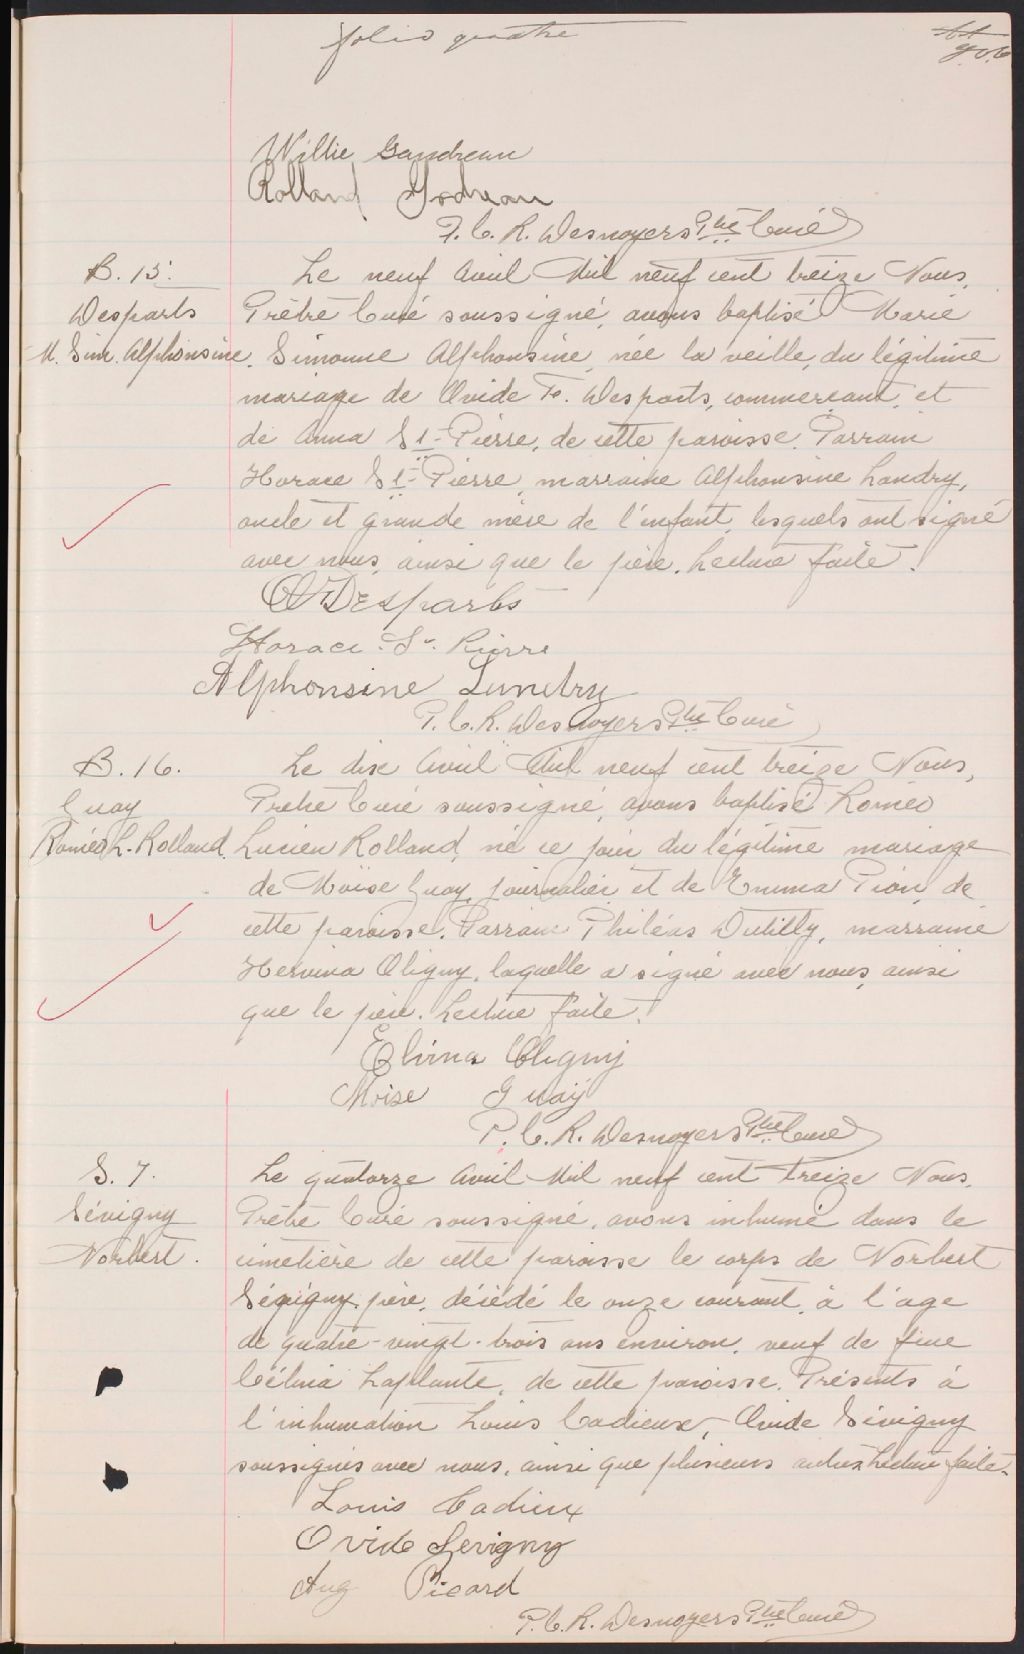 folio quatre
Willie Gaudreau
Rolland Godreau
P. C. R. Desnoyers Ptre Curé
B. 15.
Le neuf Avril Mil neuf cent treize Nous,
Desparts
Prêtre Curé soussigné, avons baptisé Marie
M. Sim. Alphonsine.
Simonne Alphonsine, née la veille, du légitime
mariage de Ovide F. Desparts, commercant, et
de Anna St-Pierre, de cette paroisse. Parrain
Horace St-Pierre, marraine Alphonsine Landry,
oncle et grande mère de l'enfant, lesquels ont signé
avec nous, ainsi que le père. Lecture faite.
Desparts
Horace St. Pierre
Alphonsine Landry
P. C. R. Desnoyers Ptre Curé
B. 16.
Le dix Avril Mil neuf cent treize Nous,
Guay
Prêtre Curé soussigné, avons baptisé Roméo
Roméo L. Rolland.
Lucien Rolland, né ce jour du légitime mariage
de Moïse Guay, journalier, et de Emma Pion, de
cette paroisse. Parrain Philéas Dutilly, marraine
Oligny, laquelle a signé avec nous, ainsi
que le père. Lecture faite.
Elvina Oligny
Moise Guay
P. C. R. Desnoyers Ptre Curé
S. 7.
Le quatorze Avril Mil neuf cent treize Nous,
Sévigny
Prêtre Curé soussigné, avons inhumé dans le
Norbert.
cimetière de cette paroisse le corps de Norbert
Sévigny, père, décédé le onze courant, à l'age
de quatre-vingt-trois ans environ, veuf de feue
Célina Laplante, de cette paroisse. Présents à
l'inhumation Louis Cadieux, Ovide Sévigny
soussignés avec nous, ainsi que plusieurs autres. Lecture faite.
Louis Cadieux
Ovide Sevigny
Aug Picard
P. C. R. Desnoyers Ptre Curé